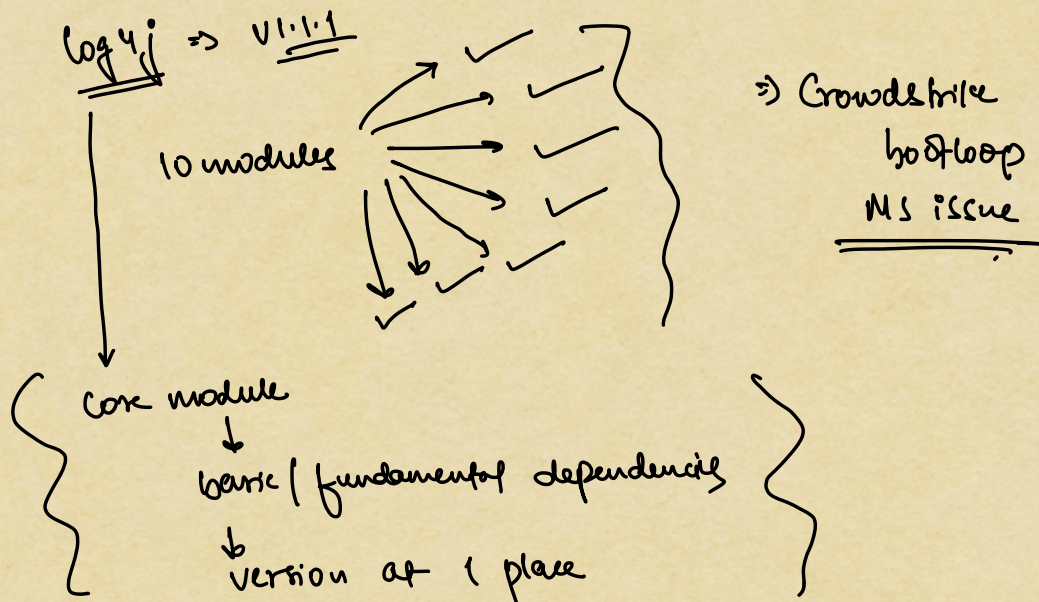 log4j => V1.1.1
10 modules
=> Crowdstrike
bootloop
MS issue
core module
basic / fundamental dependencies
version at 1 place